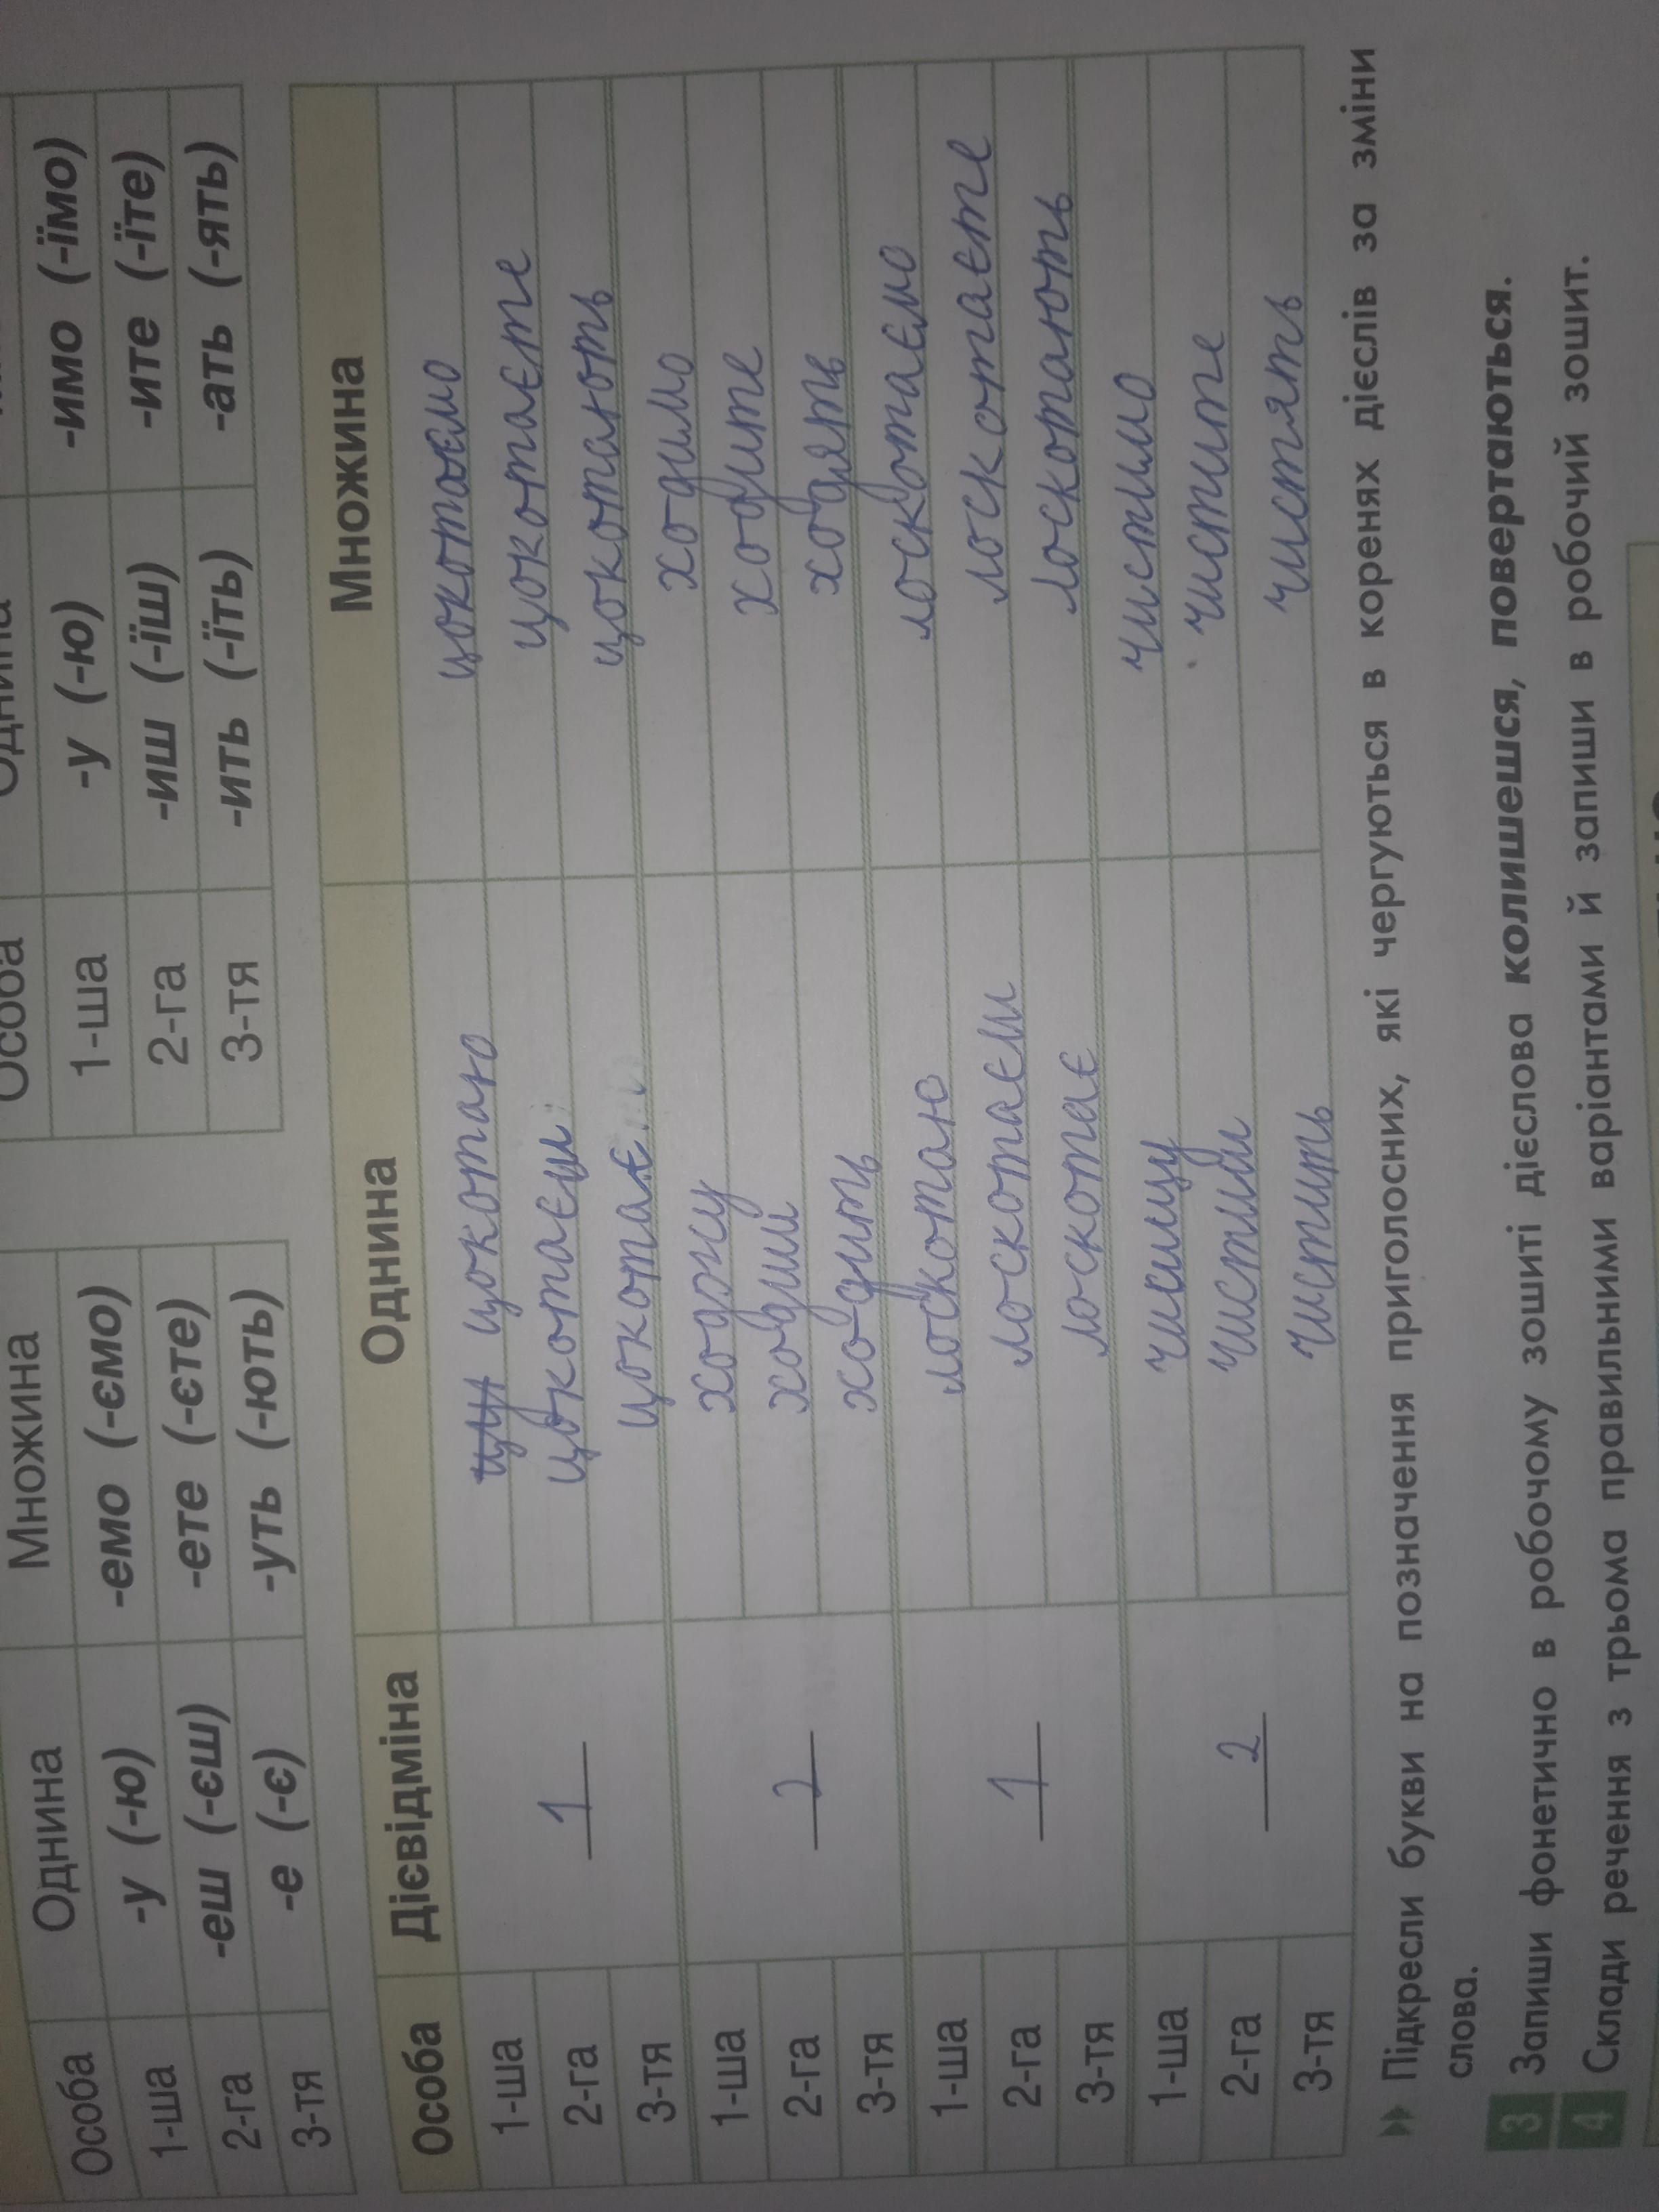 Множина Однина
Особа Однина Множина Особа
1-ша -у (-ю) -емо (-ємо) 1-ша -у (-ю) -имо (-їмо)
2-га -еш (-єш) -ете (-єте) 2-га -иш (-їш) -ите (-їте)
3-тя -е (-є) -уть (-ють) 3-тя -ить (-їть) -ать (-ять)
Особа Дієвідміна Однина Множина
1-ша цокотаю цокотаємо
2-га 1 цокотаєш цокотаєте
3-тя цокотає цокотають
1-ша ходжу ходимо
2-га 2 ходиш ходите
3-тя ходить ходять
1-ша лоскотаю лоскотаємо
2-га 1 лоскотаєш лоскотаєте
3-тя лоскотає лоскотають
1-ша чищу чистимо
2-га 2 чистиш чистите
3-тя чистить чистять
Підкресли букви на позначення приголосних, які чергуються в коренях дієслів за зміни
слова.
3 Запиши фонетично в робочому зошиті дієслова колишешся, повертаються.
4 Склади речення з трьома правильними варіантами й запиши в робочий зошит.